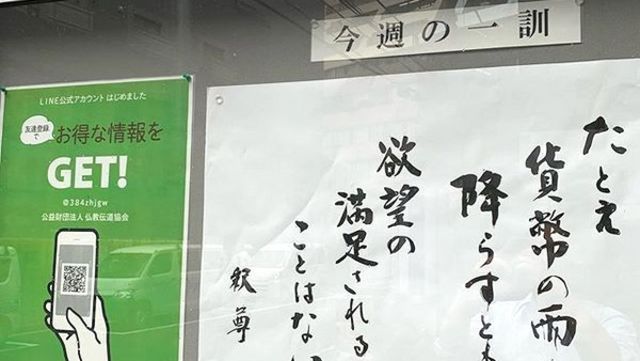 今週の一訓
たとえ
貨幣の雨
降らすとも
欲望の
満足される
ことはない
釈尊
LINE公式アカウント はじめました
友達登録で
お得な情報を
GET!
@384zhjgw
公益財団法人 仏教伝道協会